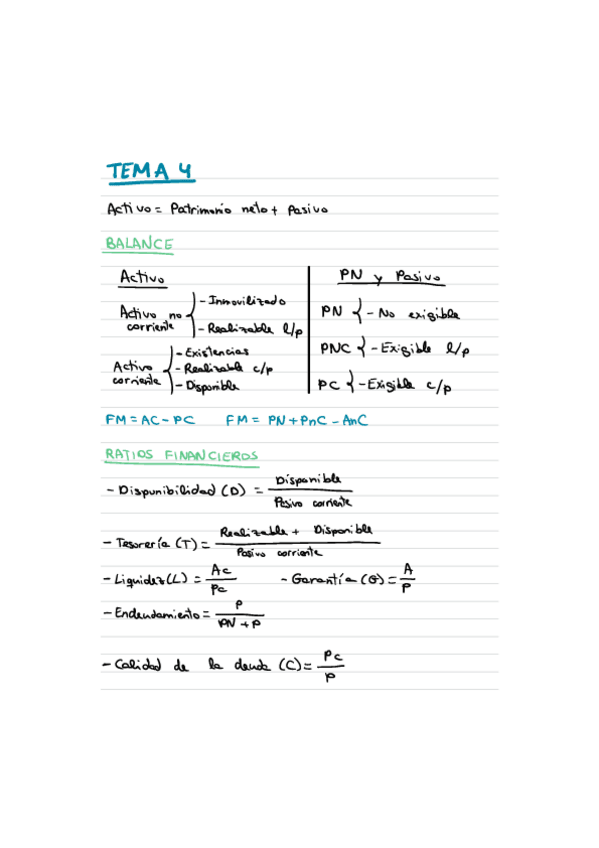 TEMA 4
Activo = Patrimonio neto + Pasivo
BALANCE
Activo
Activo no corriente { - Inmovilizado
- Realizable l/p
Activo corriente { - Existencias
- Realizable c/p
- Disponible
PN y Pasivo
PN { - No exigible
PNC { - Exigible l/p
PC { - Exigible c/p
FM = AC - PC FM = PN + PnC - AnC
RATIOS FINANCIEROS
- Disponibilidad (D) = Disponible / Pasivo corriente
- Tesorería (T) = Realizable + Disponible / Pasivo corriente
- Liquidez (L) = Ac / Pc - Garantía (G) = A / P
- Endeudamiento = P / PN + P
- Calidad de la deuda (C) = Pc / P